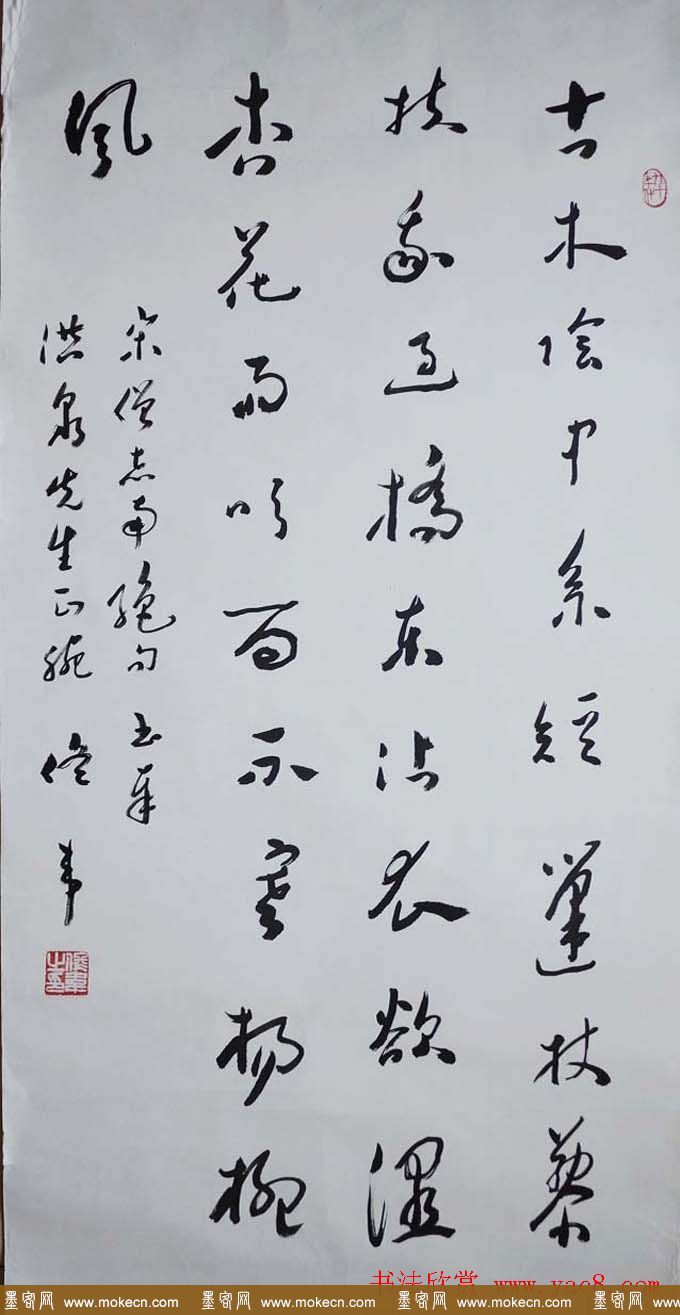 古木陰中系短篷杖藜
扶我過橋東沾衣欲濕
杏花雨吹面不寒楊柳
風
宋僧志南絕句 書奉
洪泉先生正腕
书法欣赏 www.yac8.com
墨客网 www.mokecn.com 墨客网 www.mokecn.com 墨客网 www.mokecn.com 墨客网 www.mokecn.com